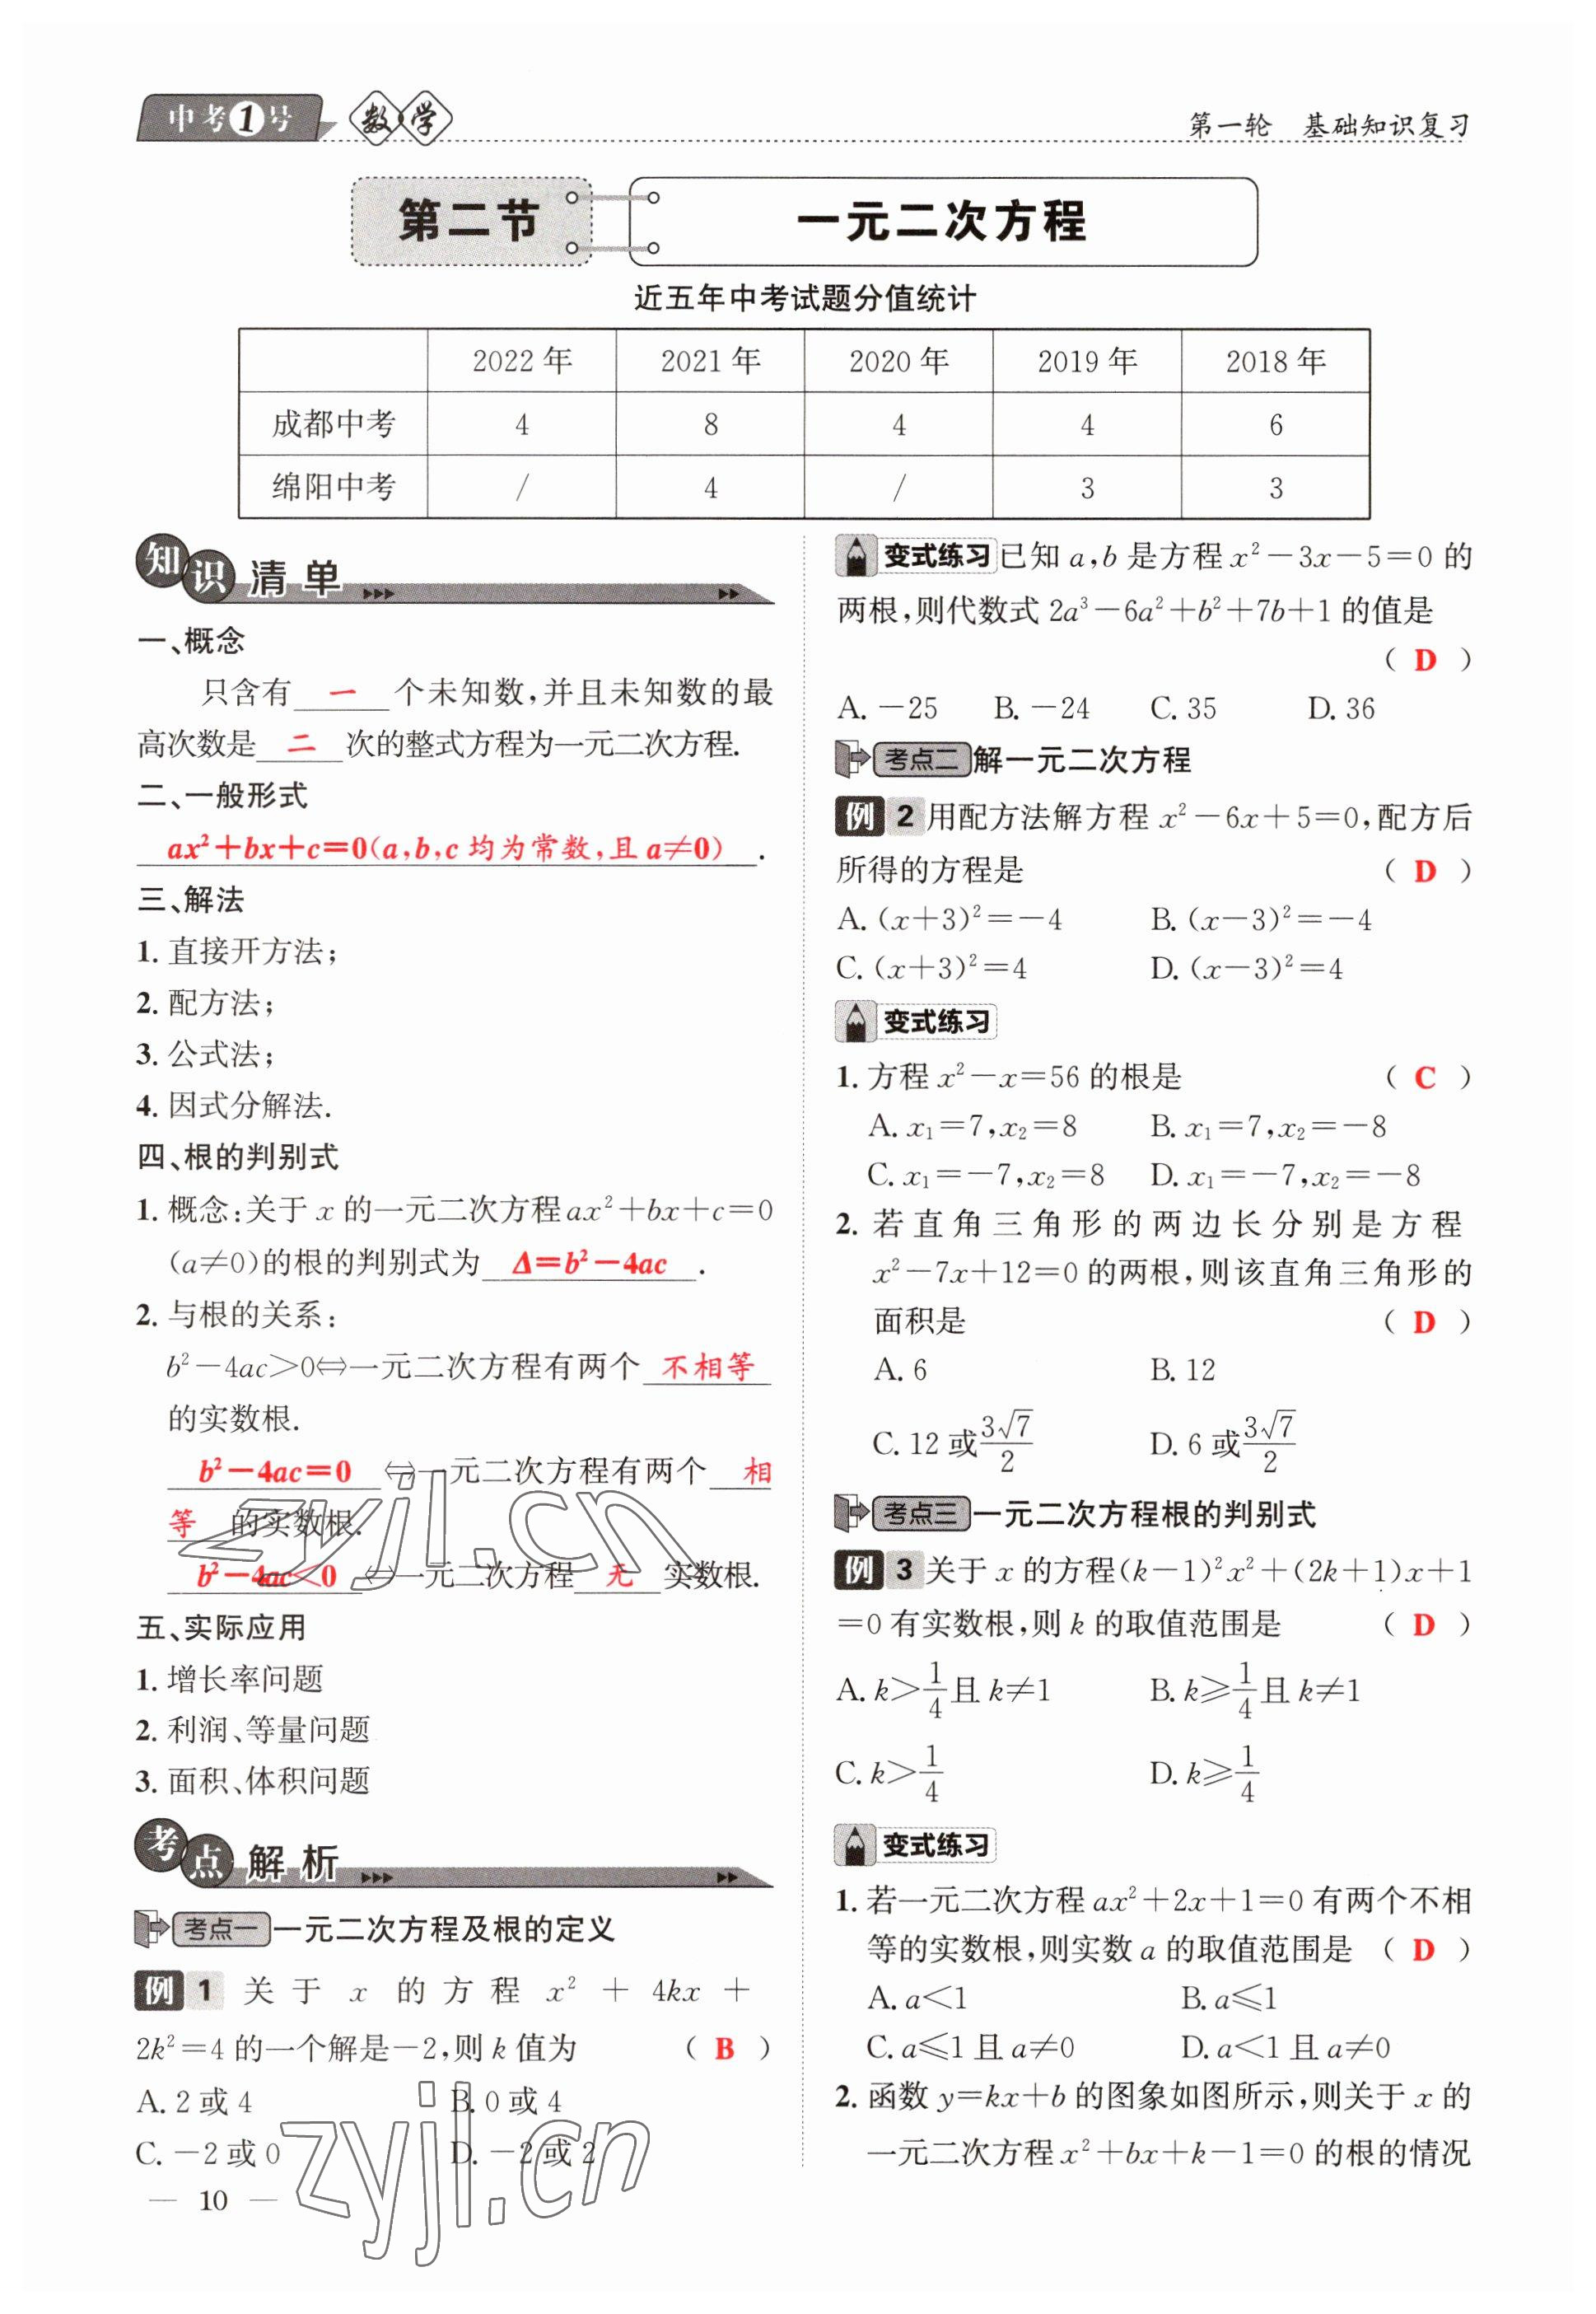 中考1号 数学
第一轮 基础知识复习
第二节 一元二次方程
近五年中考试题分值统计
2022年 2021年 2020年 2019年 2018年
成都中考 4 8 4 4 6
绵阳中考 / 4 / 3 3
知识清单
一、概念
只含有 一 个未知数,并且未知数的最
高次数是 二 次的整式方程为一元二次方程.
二、一般形式
ax²+bx+c=0(a,b,c均为常数,且a≠0).
三、解法
1. 直接开方法;
2. 配方法;
3. 公式法;
4. 因式分解法.
四、根的判别式
1. 概念:关于x的一元二次方程ax²+bx+c=0
(a≠0)的根的判别式为 Δ=b²-4ac .
2. 与根的关系:
b²-4ac>0⇔一元二次方程有两个 不相等
的实数根.
b²-4ac=0 ⇔一元二次方程有两个 相
等 的实数根.
b²-4ac<0 ⇔一元二次方程 无 实数根.
五、实际应用
1. 增长率问题
2. 利润、等量问题
3. 面积、体积问题
考点解析
考点一 一元二次方程及根的定义
例1 关于x的方程x²+4kx+
2k²=4的一个解是-2,则k值为 ( B )
A. 2或4 B. 0或4
C. -2或0 D. -2或2
— 10 —
变式练习 已知a,b是方程x²-3x-5=0的
两根,则代数式2a³-6a²+b²+7b+1的值是
( D )
A. -25 B. -24 C. 35 D. 36
考点二 解一元二次方程
例2 用配方法解方程x²-6x+5=0,配方后
所得的方程是 ( D )
A. (x+3)²=-4 B. (x-3)²=-4
C. (x+3)²=4 D. (x-3)²=4
变式练习
1. 方程x²-x=56的根是 ( C )
A. x₁=7,x₂=8 B. x₁=7,x₂=-8
C. x₁=-7,x₂=8 D. x₁=-7,x₂=-8
2. 若直角三角形的两边长分别是方程
x²-7x+12=0的两根,则该直角三角形的
面积是 ( D )
A. 6 B. 12
C. 12或3√7/2 D. 6或3√7/2
考点三 一元二次方程根的判别式
例3 关于x的方程(k-1)²x²+(2k+1)x+1
=0有实数根,则k的取值范围是 ( D )
A. k>1/4且k≠1 B. k⩾1/4且k≠1
C. k>1/4 D. k⩾1/4
变式练习
1. 若一元二次方程ax²+2x+1=0有两个不相
等的实数根,则实数a的取值范围是 ( D )
A. a<1 B. a⩽1
C. a⩽1且a≠0 D. a<1且a≠0
2. 函数y=kx+b的图象如图所示,则关于x的
一元二次方程x²+bx+k-1=0的根的情况
zyjl.cn
zyjl.cn